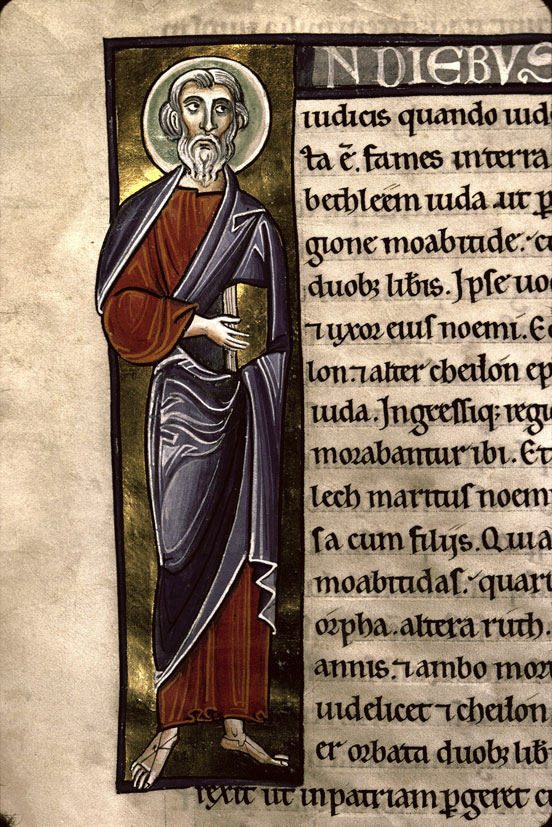 N DIEBVS
iudicis quando iud
ta ē. fames in terra
bethleem iuda ut ꝑ
gione moabitide. c
duobꝫ libis. Ipse uo
⁊ uxor eius noemi. E
lon. ⁊ alter cheilon ep
iuda. Ingressiqꝫ regi
morabantur ibi. Et
lech maritus noem
sa cum filijs. Quia
moabitidas. quar
orpha. altera ruth.
annis. ⁊ ambo mor
uidelicet ⁊ cheilon
er orbata duobꝫ lib
rexit ut in patriam ꝑgeret c